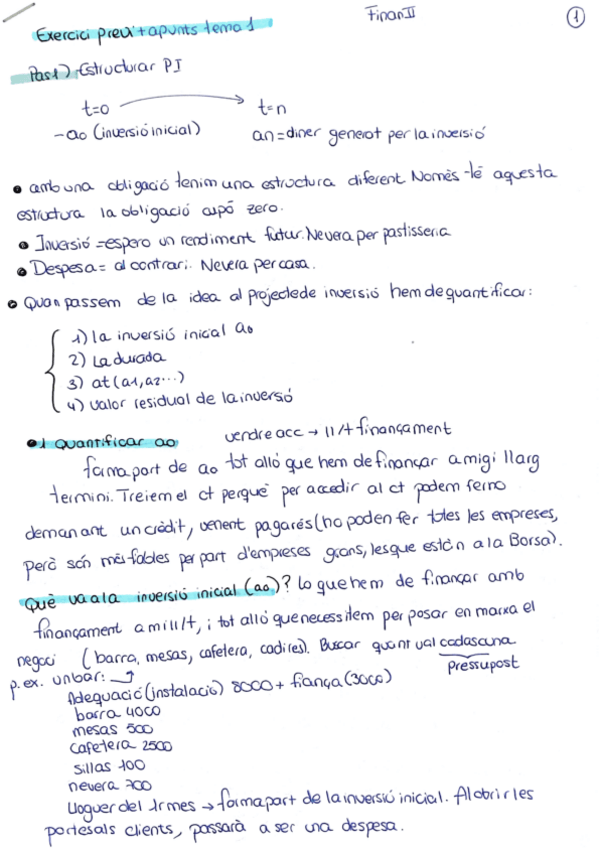 FinanII
1
Exercici previ + apunts tema 1
Pas 1) Estructurar PI
t=0 → t=n
-a0 (inversió inicial) an = diner generat per la inversió
• amb una obligació tenim una estructura diferent. Només té aquesta
estructura la obligació cupó zero.
• Inversió = espero un rendiment futur. Nevera per pastisseria
• Despesa = al contrari. Nevera per casa.
• Quan passem de la idea al projecte de inversió hem de quantificar:
1) la inversió inicial a0
2) La durada
3) at (a1, a2...)
4) valor residual de la inversió
• 1 Quantificar a0 vendre acc → ll/t finançament
forma part de a0 tot allò que hem de finançar a mig i llarg
termini. Treiem el ct perquè per accedir al ct podem fer-ho
demanant un crèdit, venent pagarés (ho poden fer totes les empreses,
però són més fiables per part d'empreses grans, les que estàn a la Borsa).
Què va a la inversió inicial (a0)? Lo que hem de finançar amb
finançament a m i ll/t, i tot allò que necessitem per posar en marxa el
negoci (barra, mesas, cafetera, cadires). Buscar quant val cadascuna
pressupost
p.ex. un bar:
Adequació (instalació) 8000 + fiança (3000)
barra 4000
mesas 500
cafetera 2500
sillas 100
nevera 700
Lloguer del 1r mes → forma part de la inversió inicial. Al obrir les
portes als clients, passarà a ser una despesa.